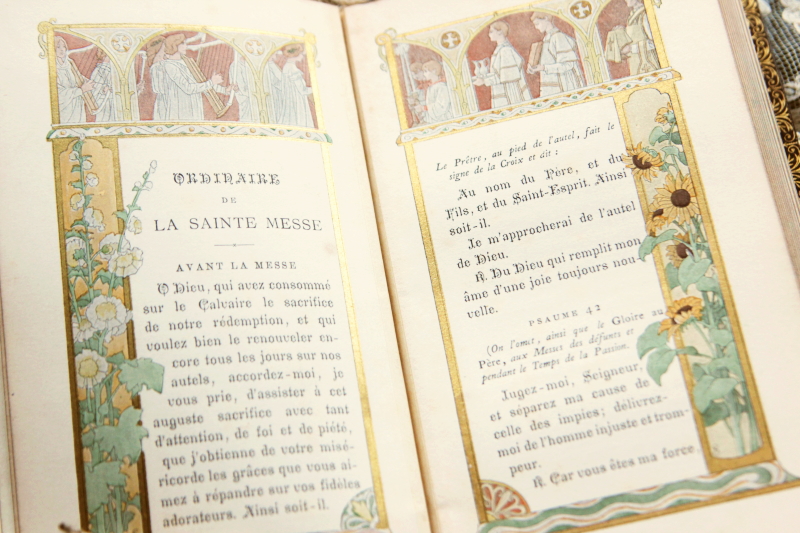 ORDINAIRE
DE
LA SAINTE MESSE
AVANT LA MESSE
O Dieu, qui avez consommé
sur le Calvaire le sacrifice
de notre rédemption, et qui
voulez bien le renouveler en-
core tous les jours sur nos
autels, accordez-moi, je
vous prie, d'assister à cet
auguste sacrifice avec tant
d'attention, de foi et de piété,
que j'obtienne de votre misé-
ricorde les grâces que vous ai-
mez à répandre sur vos fidèles
adorateurs. Ainsi soit-il.
Le Prêtre, au pied de l'autel, fait le
signe de la Croix et dit :
Au nom du Père, et du
Fils, et du Saint-Esprit. Ainsi
soit-il.
Je m'approcherai de l'autel
de Dieu.
℟. Du Dieu qui remplit mon
âme d'une joie toujours nou-
velle.
PSAUME 42
(On l'omet, ainsi que le Gloire au
Père, aux Messes des défunts et
pendant le Temps de la Passion.
Jugez-moi, Seigneur,
et séparez ma cause de
celle des impies; délivrez-
moi de l'homme injuste et trom-
peur.
℟. Car vous êtes ma force.